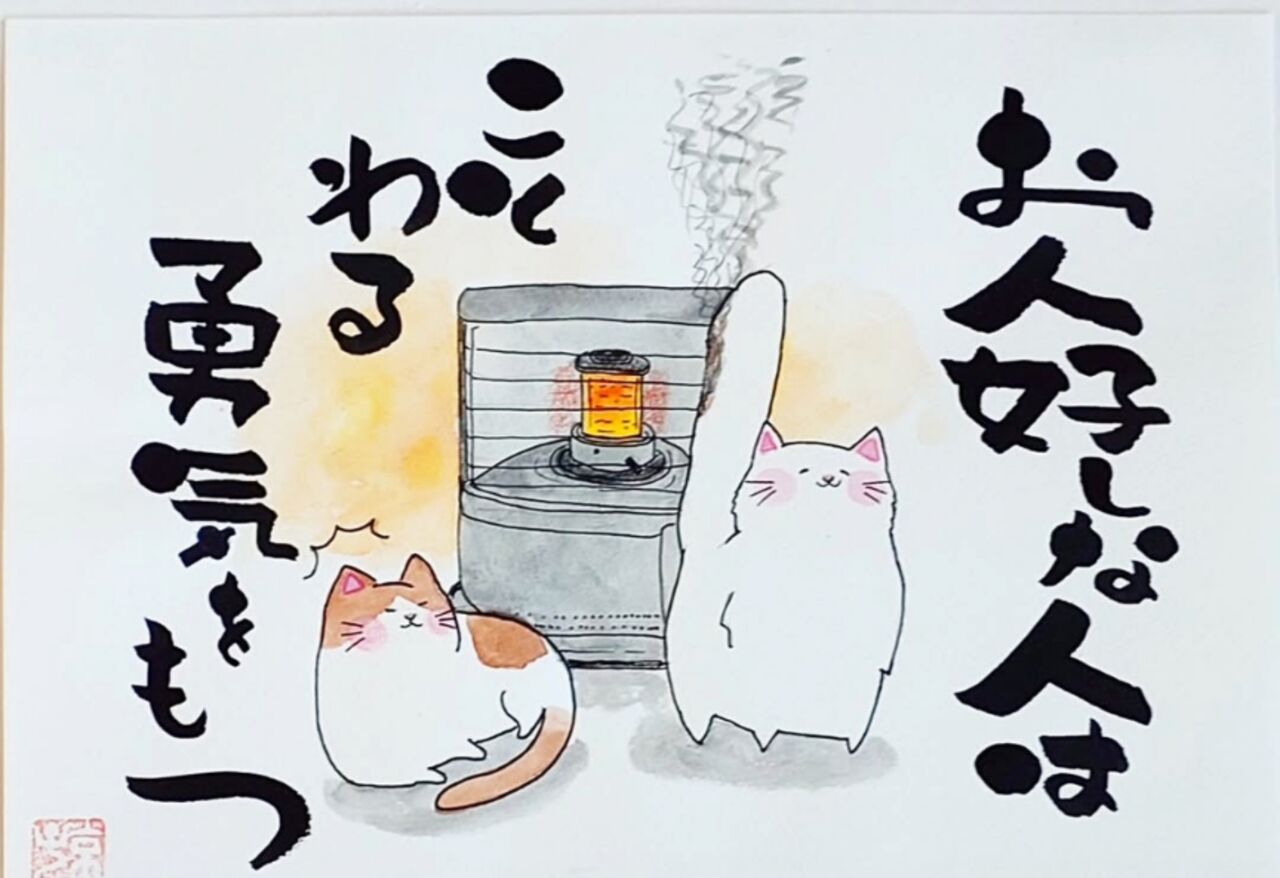 お人好しな人は
こと
わる
勇気をもつ